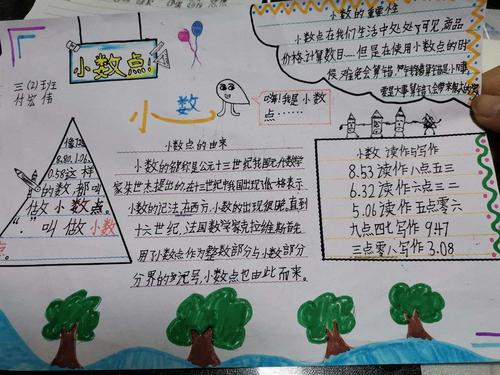 小数点!
三(2)班
付宏伟
小数
嗨!我是小数
点……
小数的重要性
小数点在我们生活中处处可见,商品
价格,计算数目……但是在使用小数点的时
候
像
8.80、1.06、
0.58这样
的数,都叫
做小数。
“.”叫做小数
点。
小数点的由来
小数的名称是公元十三世纪我国元代数学
家朱世杰提出的,在十三世纪中我国出现了低一格表示
小数的记法,在西方,小数的出现很晚,直到
十六世纪,法国数学家克拉维斯首先
用了小数点作为整数部分与小数部分
分界的号,小数点也由此而来。
小数读作与写作
8.53读作八点五三
6.32读作六点三二
5.06读作五点零六
九点四七写作9.47
三点零八写作3.08